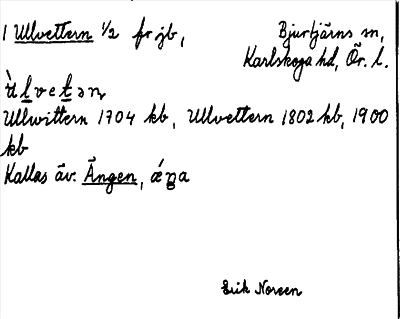 1 Ullvettern 1/2 fr jb, Bjurtjärns sn,
Karlskoga hd, Ör. l.
Ullwittern 1704 kb, Ullvettern 1802 kb, 1900
kb
Kallas äv. Ängen,
Erik Noreen